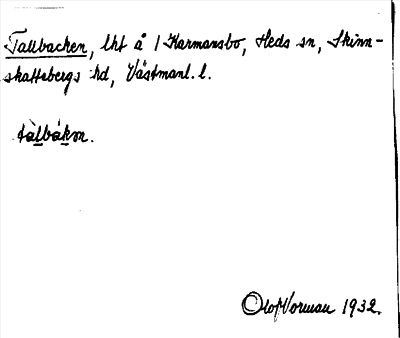 Tallbacken, lht å 1 Karmansbo, Heds sn, Skinn-
skattebergs hd, Västmanl. l.
tàlbákən.
Olof Vorman 1932.